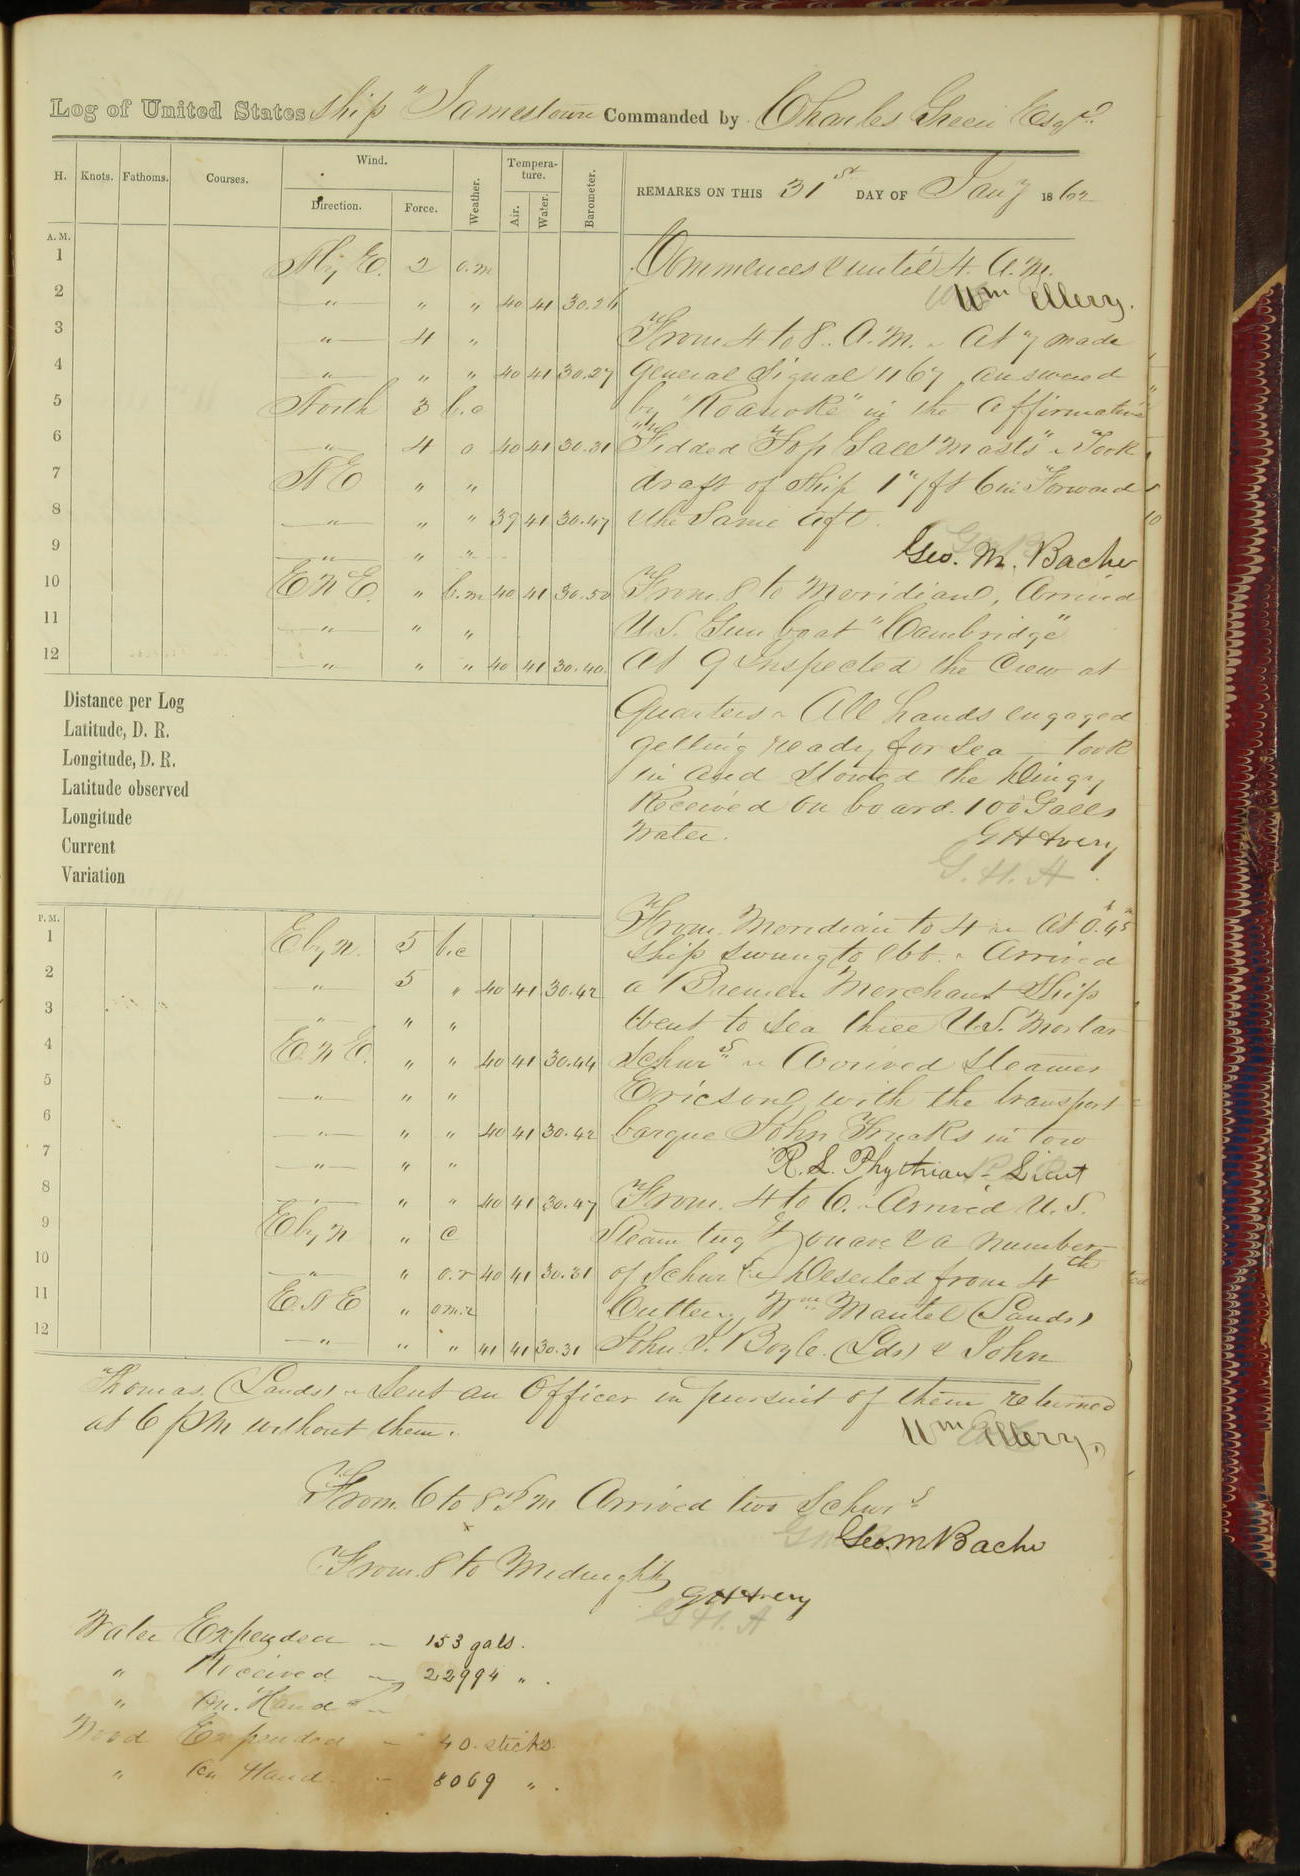 Log of United States Ship "Jamestown Commanded by Charles Green Esqr.
H. Knots. Fathoms. Courses. Wind. Direction. Force. Weather. Tempera-ture. Air. Water. Barometer. REMARKS ON THIS 31st DAY OF Jany 1862
A.M.
1 N by E. 2 o.m Commences & until 4. A.M.
2 " " " 40 41 30.26 Wm Ellery.
3 " 4 " From 4 to 8. A.M. At 7 made
4 " " " 40 41 30.27 General Signal 1167, answered
5 North 3 b.c by "Roanoke" in the affirmative
6 " 4 o 40 41 30.31 Fidded Top Gall Masts Took
7 N E " " draft of Ship 17 ft 6 in Forward
8 " " " 39 41 30.47 & the Same aft.
9 " " " Geo. M. Bache
10 E N E. " b.m 40 41 30.50 From 8 to Meridian, Arrived
11 " " " U.S. Gun boat "Cambridge"
12 " " " 40 41 30.40 At 9 Inspected the Crew at
Quarters All hands engaged
getting ready for Sea took
in and stowed the Dingy
Received on board 100 Galls
Water. G H Avery
G. H. A.
Distance per Log
Latitude, D. R.
Longitude, D. R.
Latitude observed
Longitude
Current
Variation
P.M.
From Meridian to 4 At 0.45
1 E by N. 5 b.c Ship swung to ebb. Arrived
2 " 5 " 40 41 30.42 a Bremen Merchant Ship
3 " " " Went to Sea three U.S. Mortar
4 E. N E. " " 40 41 30.44 Schurs Arrived Steamer
5 " " " Ericson with the transport
6 " " " 40 41 30.42 barque John Trucks in tow
7 " " " R. L. Phythian Lieut
8 " " " 40 41 30.47 From 4 to 6. Arrived U.S.
9 E by N " c Steam tug & a number
10 " " o.r 40 41 30.31 of Schurs Deserted from 4th
11 E. N E " o m.r Cutter, Wm Mantel (Lands)
12 " " " 41 41 30.31 John V. Boyle (Lds) & John
Thomas (Lands) Sent an Officer in pursuit of them returned
at 6 PM without them.
Wm Ellery.
From 6 to 8 PM Arrived two Schurs
Geo. M Bache
From 8 to Midnight
G H Avery
G H. A
Water Expended 153 gals.
" Received 22994 " .
" On Hand
Wood Expended 40 sticks
" On Hand 8069 " .